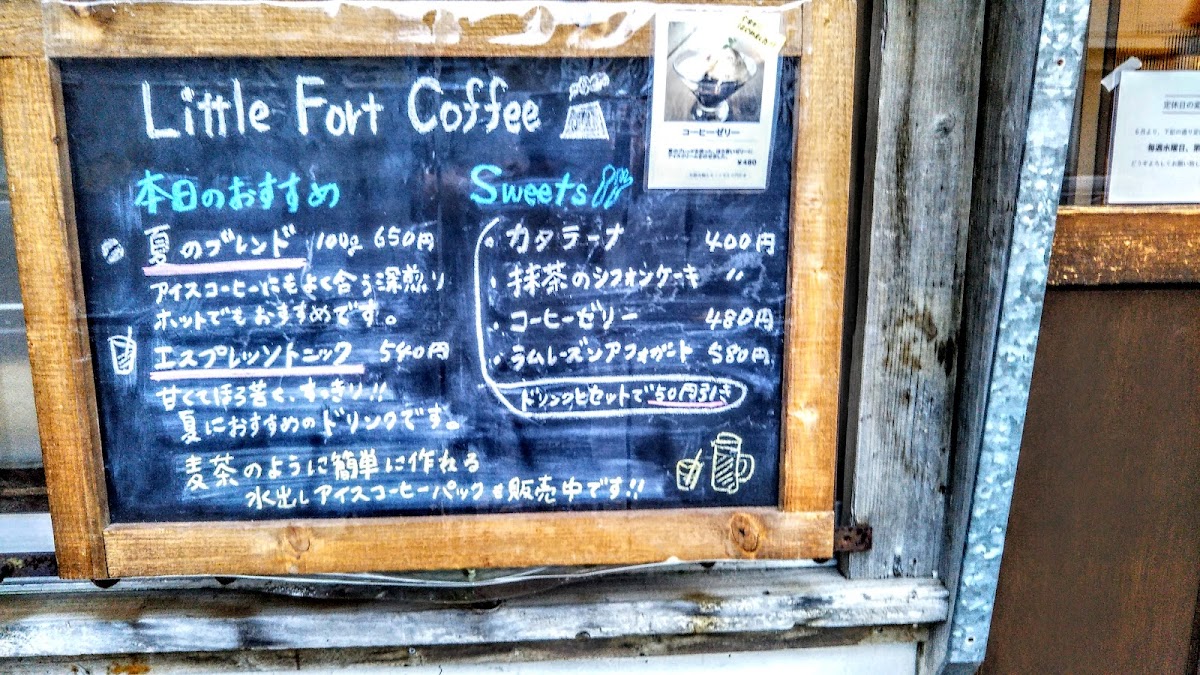 Little Fort Coffee
本日のおすすめ
夏のブレンド 100g 650円
アイスコーヒーにもよく合う深煎り
ホットでもおすすめです。
エスプレッソトニック 540円
甘くてほろ苦く、すっきり!!
夏におすすめのドリンクです。
麦茶のように簡単に作れる
水出しアイスコーヒーパックも販売中です!!
Sweets
・カタラーナ 400円
・抹茶のシフォンケーキ 〃
・コーヒーゼリー 480円
・ラムレーズンアフォガード 580円
ドリンクとセットで50円引き
コーヒーゼリー
¥480
定休日の変
6月より、下記の通り
毎週水曜日、第
どうぞよろしくお願い致し